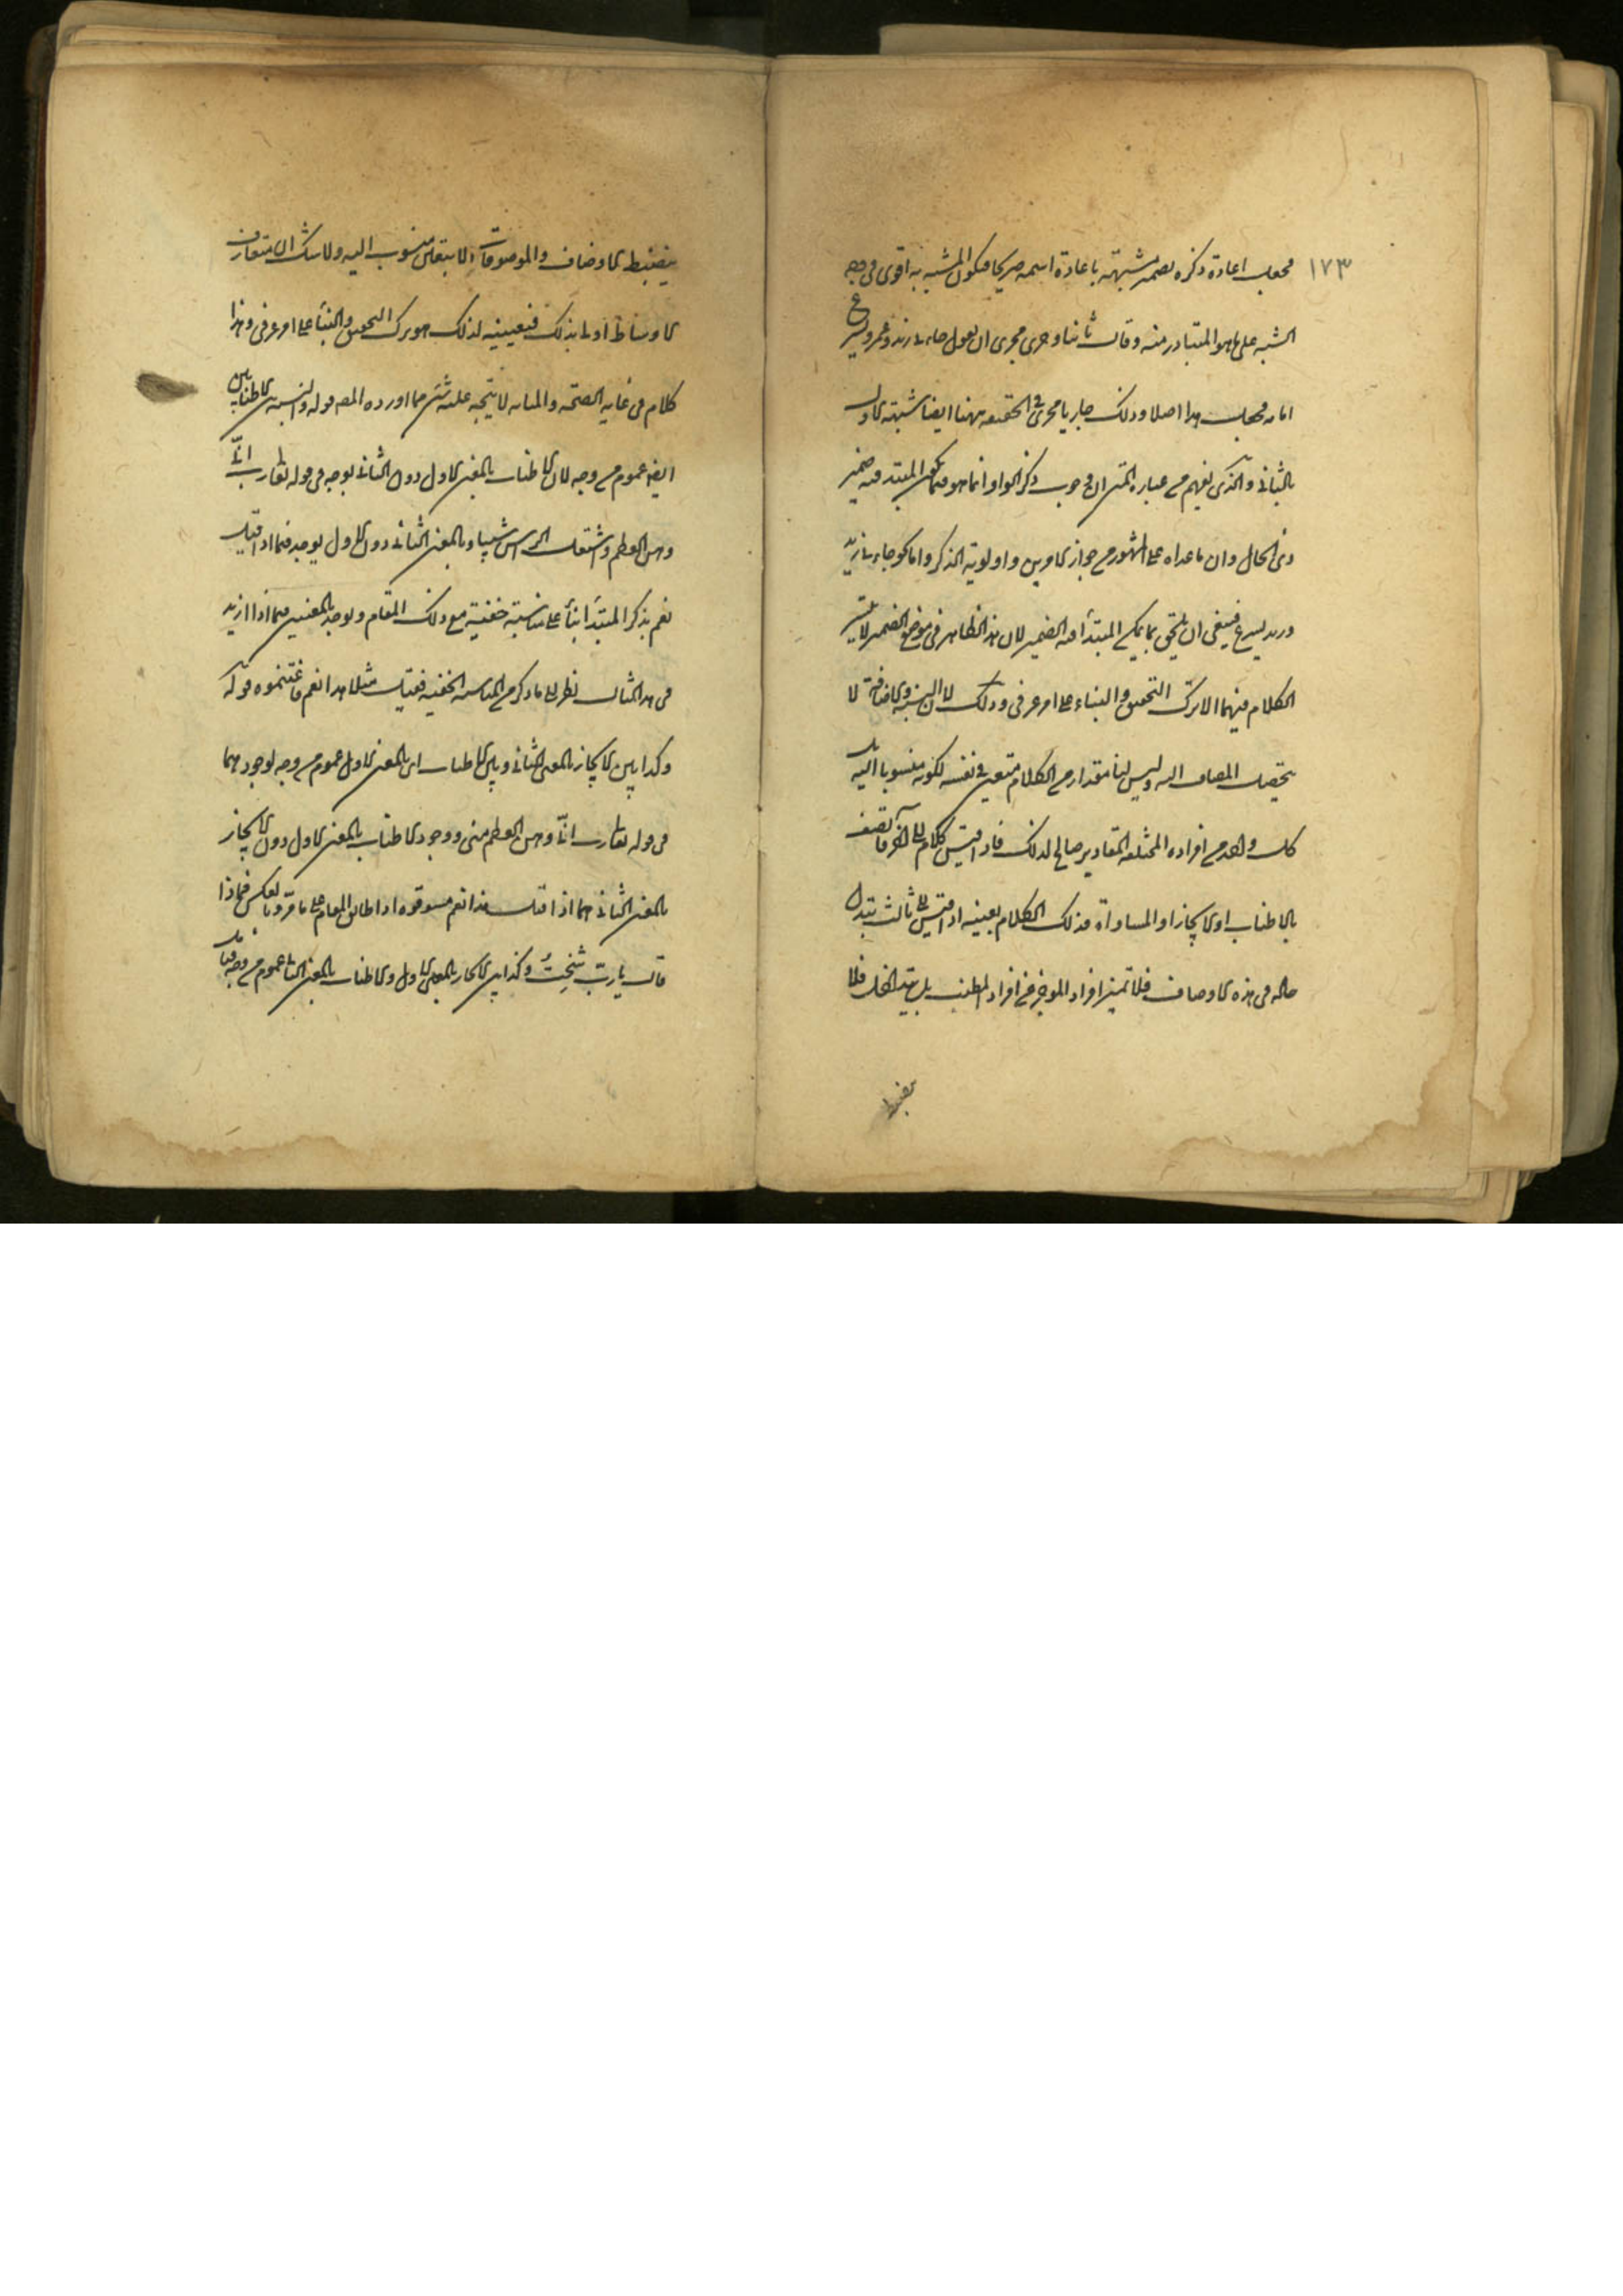 ١٧٣
فجعل اعادة ذكره بضميره مشبهة باعادة اسمه صريحا فيكون المشبه به اقوى في وجه
الشبه على ما هو المتبادر منه وقال ثانيا وجرى مجرى ان تقول جاءني زيد وعمرو يسرع
امامه فجعل هذا اصلا وذلك جاريا مجراه في الحقيقة ههنا ايضا شبه الاول
بالثاني والذي يفهم من عبارة المتن ان وجوب ذكر الواو انما هو فيما يكون المبتدأ فيه ضمير
ذي الحال وان ما عداه على المشهور من جواز الامرين واولوية الذكر واما نحو جاءني زيد
وزيد يسرع فينبغي ان يلحق بما يكون المبتدأ فيه الضمير لان هذا الظاهر في موضع الضمير
الكلام فيهما الا بترك التحقيق والبناء على امر عرفي وذلك لان النسبة والاضافة لا
تتحصل المضاف اليه وليس لنا مقدار من الكلام متعين في نفسه لكونه منسوبا اليه بل
كل واحد من افراده المختلفة المقادير صالح لذلك فاذا قيس كلام الى آخر فاتصف
بالاطناب او الايجاز او المساواة فذلك الكلام بعينه اذا قيس الى ثالث يتبدل
حاله في هذه الاوصاف فلا تتميز افراد الموجز عن افراد المطنب بل يتداخل فلا
ينضبط
ينضبط الاوصاف والموصوفات الا بتعيين منسوب اليه ولا شك ان متعارف
الاوساط اولى بذلك فتعيينه لذلك هو ترك التحقيق والبناء على امر عرفي وهذا
كلام في غاية الصحة والمتانة لا يتجه عليه شيء مما اورده المص قوله والنسبة بين الاطنابين
ايضا عموم من وجه لان الاطناب بالمعنى الاول دون الثاني يوجد في قوله تعالى رب اني
وهن العظم واشتعل الرأس شيبا وبالمعنى الثاني دون الاول يوجد فيما اذا قيل
نعم بذكر المبتدأ ابناء على مناسبة خفية مع ذلك المقام ويوجد بالمعنيين فيما اذا زيد
في هذا المثال نظرا الى ما ذكر من المناسبة الخفية فقيل مثلا هذا نعم فاغتنموه قوله
وكذا بين الايجاز بالمعنى الثاني وبين الاطناب اي بالمعنى الاول عموم من وجه لوجودهما
في قوله تعالى رب اني وهن العظم مني ووجود الاطناب بالمعنى الاول دون الايجاز
بالمعنى الثاني فيما اذا قيل هذا نعم فسوقوه اذا طابق المقام على ما مر وبالعكس فيما اذا
قال يا رب شخت وكذا بين الايجاز بالمعنى الاول والاطناب بالمعنى الثاني عموم من وجه